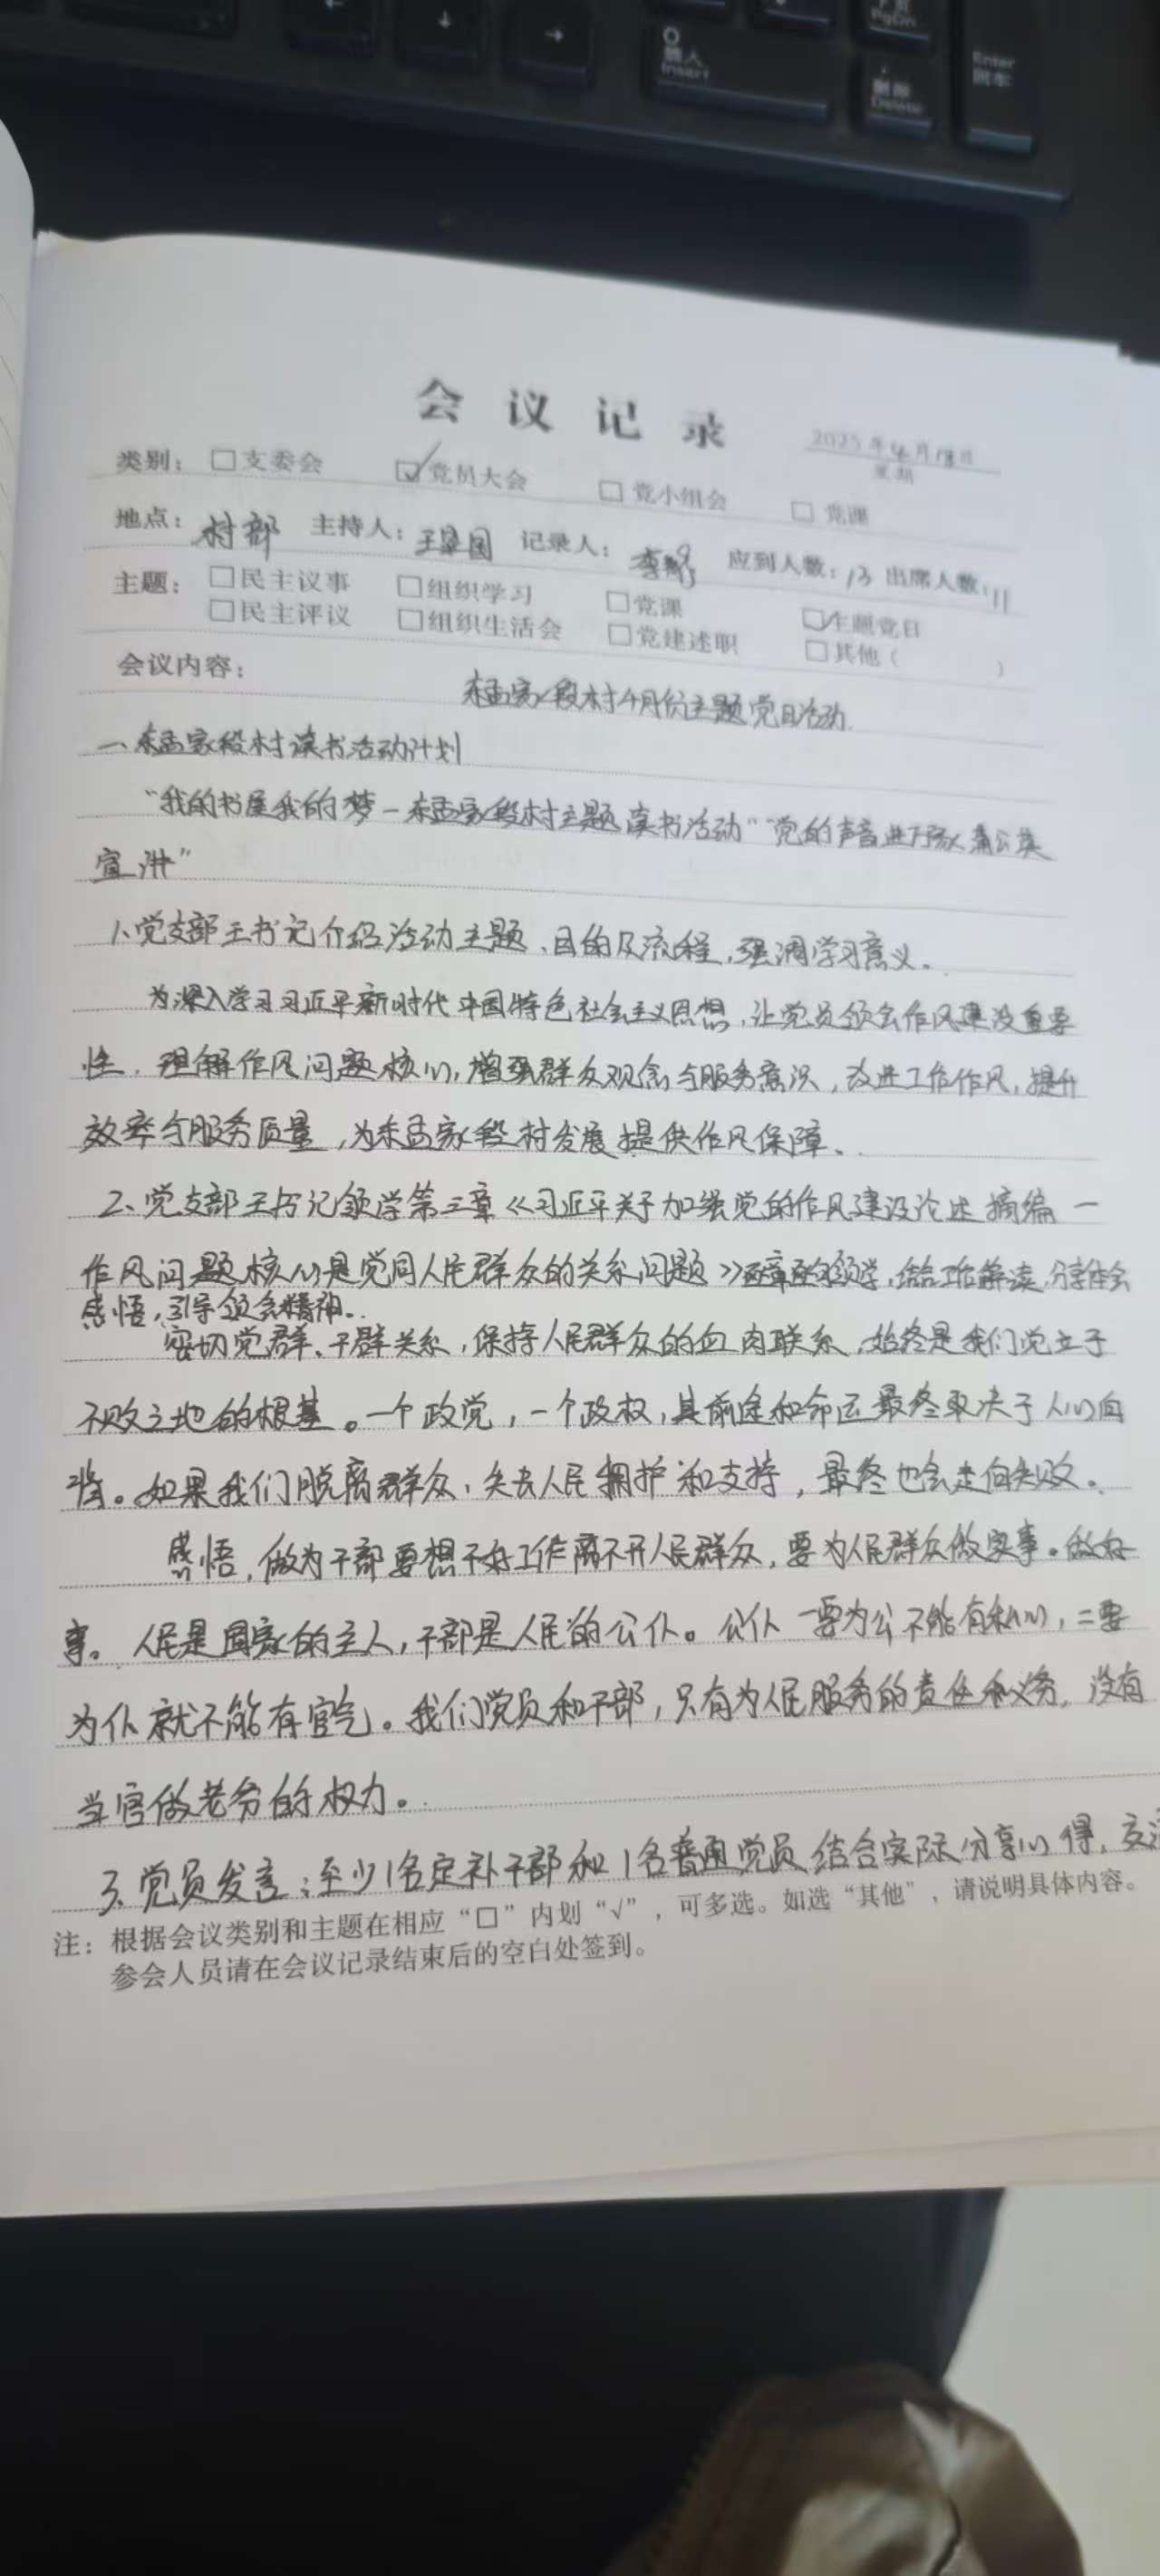 插入
Insert
PgDn
删除
Delete
Enter
回车
会议记录
2025年4月18日
星期
类别：□支委会 ☑党员大会 □党小组会 □党课
地点：村部 主持人： 记录人： 应到人数：13 出席人数：11
主题：□民主议事 □组织学习 □党课 ☑主题党日
□民主评议 □组织生活会 □党建述职 □其他（ ）
会议内容：
东孟家段村4月份主题党日活动
一、东孟家段村读书活动计划
“我的书屋我的梦—东孟家段村主题读书活动”“党的声音进万家蒲公英
宣讲”
1、党支部王书记介绍活动主题、目的及流程，强调学习意义。
为深入学习习近平新时代中国特色社会主义思想，让党员领会作风建设重要
性，理解作风问题核心，增强群众观念与服务意识，改进工作作风，提升
效率与服务质量，为东孟家段村发展提供作风保障。
2、党支部王书记领学第三章《习近平关于加强党的作风建设论述摘编—
作风问题核心是党同人民群众的关系问题》逐章逐领学，结合工作解读，分享体会
感悟，引导领会精神。
密切党群、干群关系，保持人民群众的血肉联系，始终是我们党立于
不败之地的根基。一个政党，一个政权，其前途和命运最终取决于人心向
背。如果我们脱离群众，失去人民拥护和支持，最终也会走向失败。
感悟，做为干部要想干好工作离不开人民群众，要为人民群众做实事。做好
事。人民是国家的主人，干部是人民的公仆。公仆一要为公不能有私心，二要
为仆就不能有官气。我们党员和干部，只有为人民服务的责任和义务，没有
当官做老爷的权力。
3、党员发言：至少1名定补干部和1名普通党员结合实际分享心得，交流
注：根据会议类别和主题在相应“□”内划“√”，可多选。如选“其他”，请说明具体内容。
参会人员请在会议记录结束后的空白处签到。